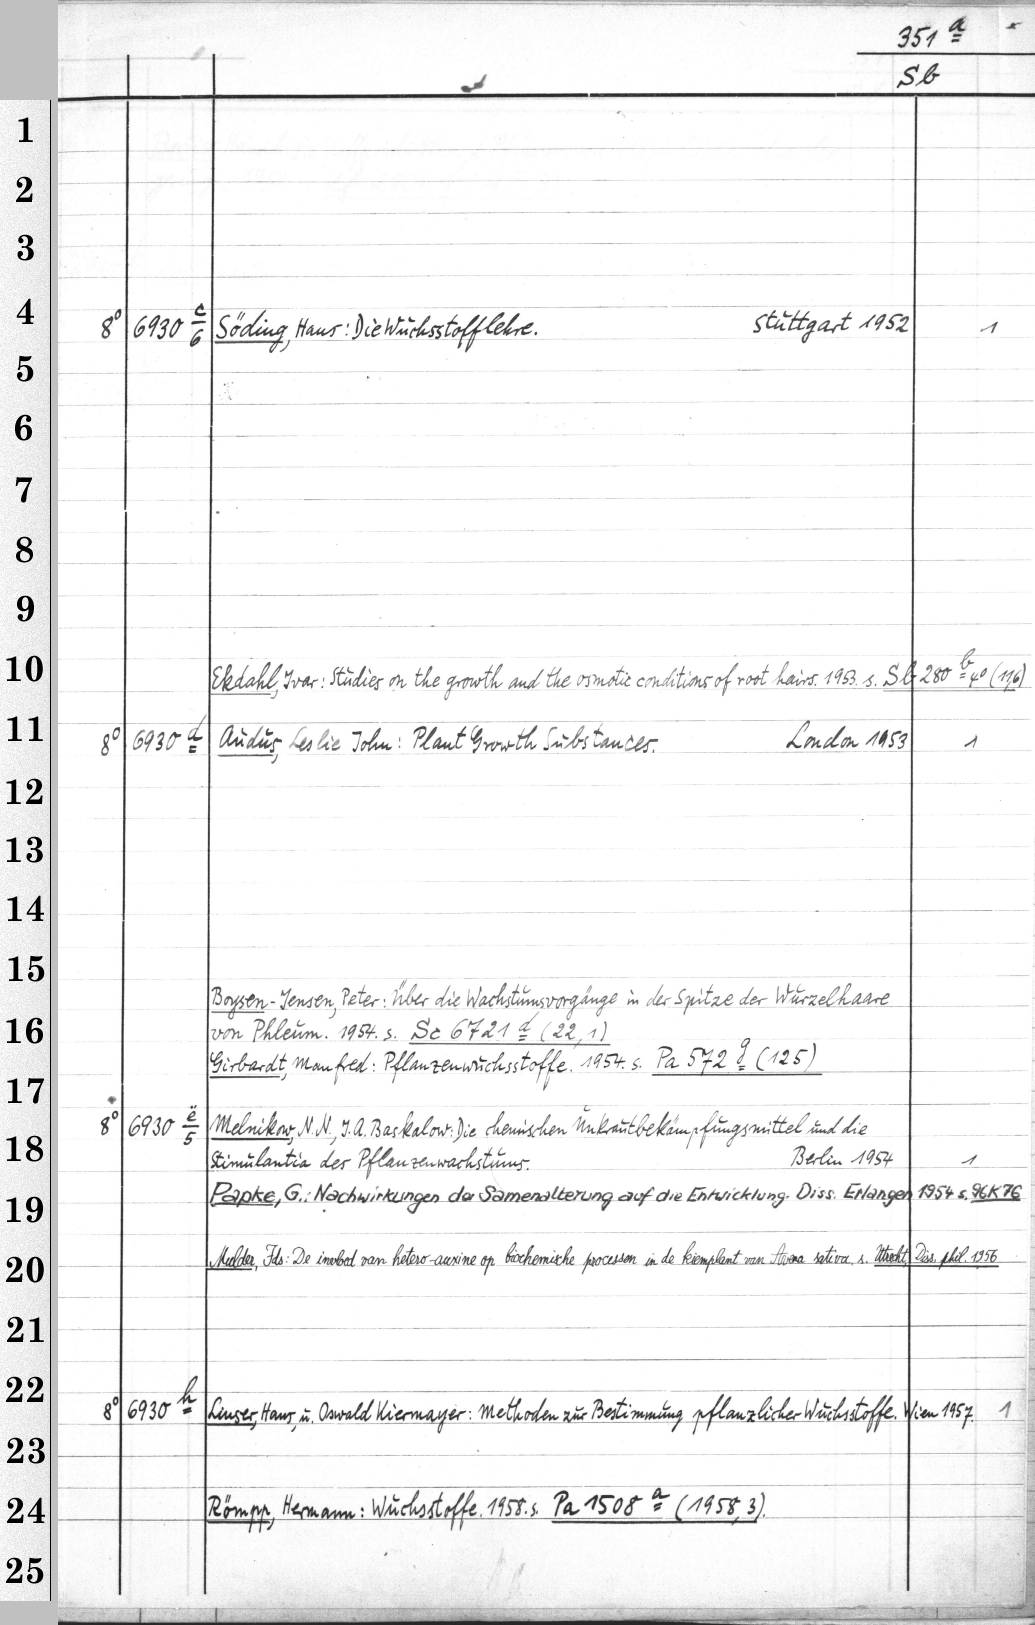 351 a
Sb
1
2
3
4
8° 6930 c/6 Söding, Hans: Die Wuchsstofflehre. Stuttgart 1952 1
5
6
7
8
9
10
Ekdahl, Ivar: Studies on the growth and the osmotic conditions of root hairs. 1953. s. Sb 280 b 4° (11,6)
11
8° 6930 d Audus, Leslie John: Plant Growth Substances. London 1953 1
12
13
14
15
Boysen-Jensen, Peter: Über die Wachstumsvorgänge in der Spitze der Wurzelhaare
16
von Phleum. 1954. s. Sc 6721 d (22, 1)
Girbardt, Manfred: Pflanzenwuchsstoffe. 1954. s. Pa 572 g (125)
17
8° 6930 e/5 Melnikow, N. N., J. A. Baskalow: Die chemischen Unkrautbekämpfungsmittel und die
18
Stimulantia des Pflanzenwachstums. Berlin 1954 1
Papke, G.: Nachwirkungen der Samenalterung auf die Entwicklung. Diss. Erlangen 1954 s. 96K76
19
Mulder, Ids: De invloed van hetero-auxine op biochemische processen in de kiemplant van Avena sativa. s. Utrecht, Diss. phil. 1956
20
21
22
8° 6930 h Linser, Hans, u. Oswald Kiermayer: Methoden zur Bestimmung pflanzlicher Wuchsstoffe. Wien 1957. 1
23
24
Römpp, Hermann: Wuchsstoffe. 1958. s. Pa 1508 a (1958, 3).
25